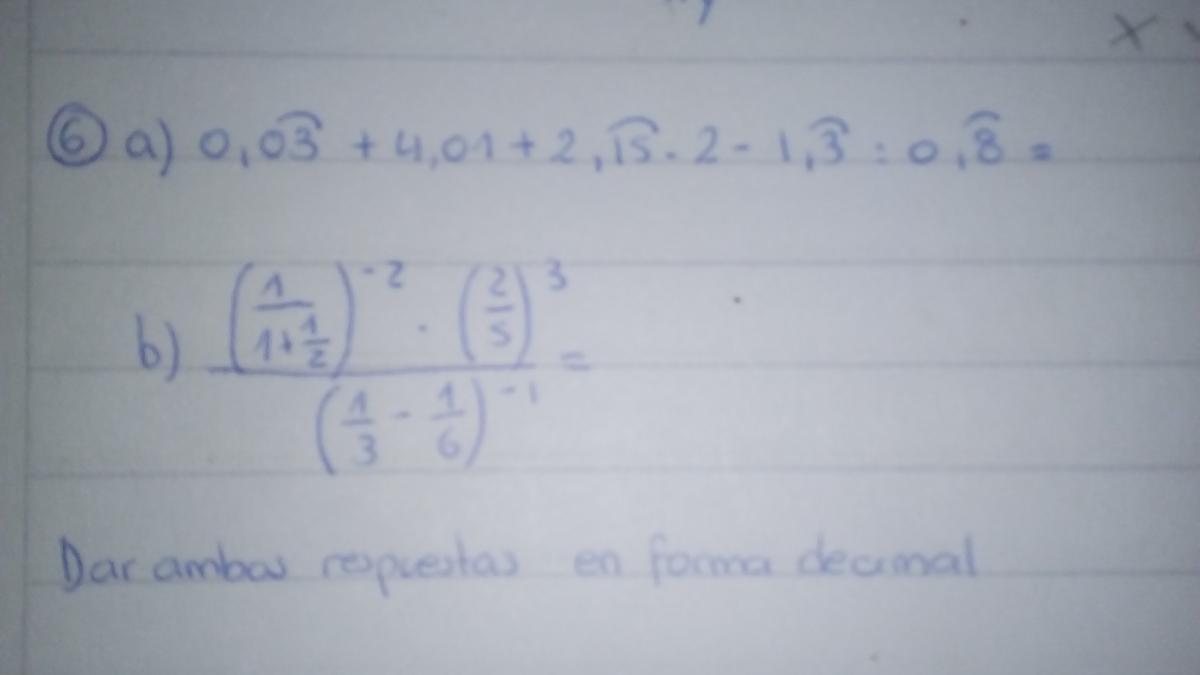 6 a) 0,0͡3 + 4,01 + 2,1͡5 . 2 - 1,3͡ : 0,8͡ =
b) (1/(1+1/2))^-2 . (2/5)^3 / (1/3 - 1/6)^-1 =
Dar ambas respuestas en forma decimal